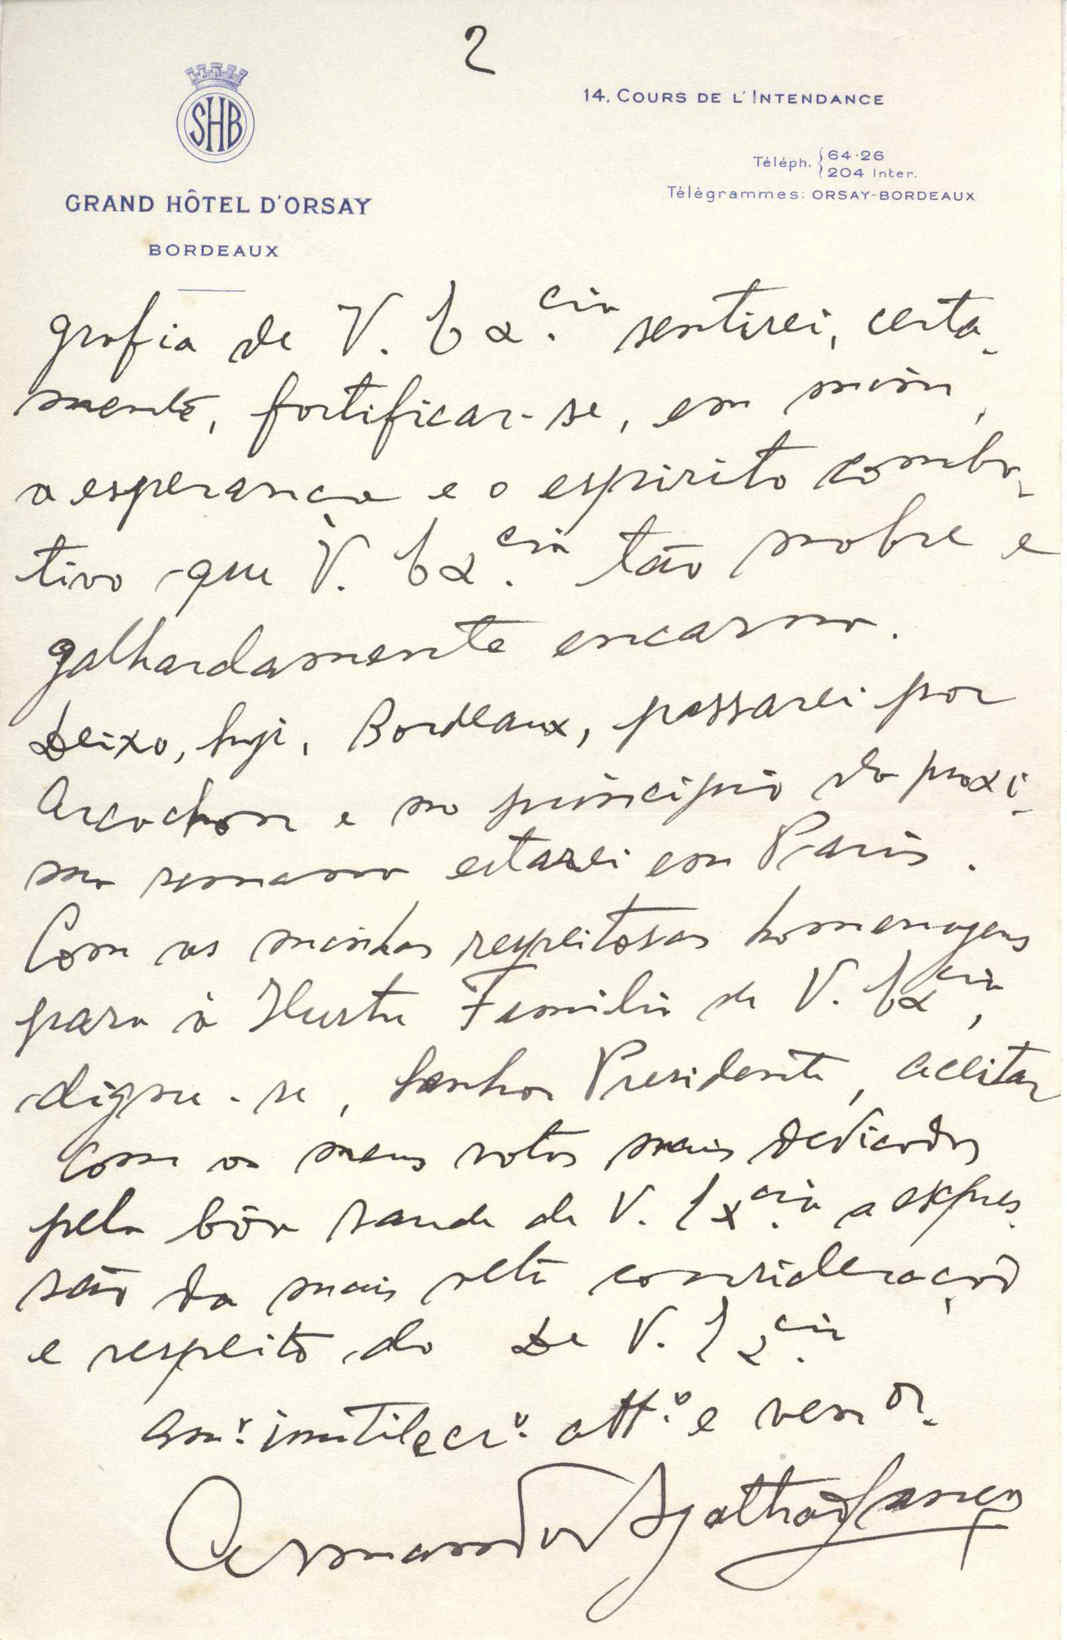 2
SHB
GRAND HÔTEL D'ORSAY
BORDEAUX
14, COURS DE L'INTENDANCE
Téléph. 64-26
204 Inter.
Télégrammes: ORSAY-BORDEAUX
grafia de V. Ex.cia sentirei, certa-
mente, fortificar-se, em mim,
a esperança e o espirito comba-
tivo que V. Ex.cia tão nobre e
galhardamente encarna.
Deixo, hoje, Bordeaux, passarei por
Arcachon e no principio da proxi-
ma semana estarei em Paris.
Com as minhas respeitosas homenagens
para a Ilustre Familia de V. Excia,
digne-se, Senhor Presidente, aceitar
com os meus votos mais dedicados
pela bôa saude de V. Excia a expres-
são da mais alta consideração
e respeito do De V. Ex.cia
Am.º inutil e cr.º att.º e ven.or
Armando